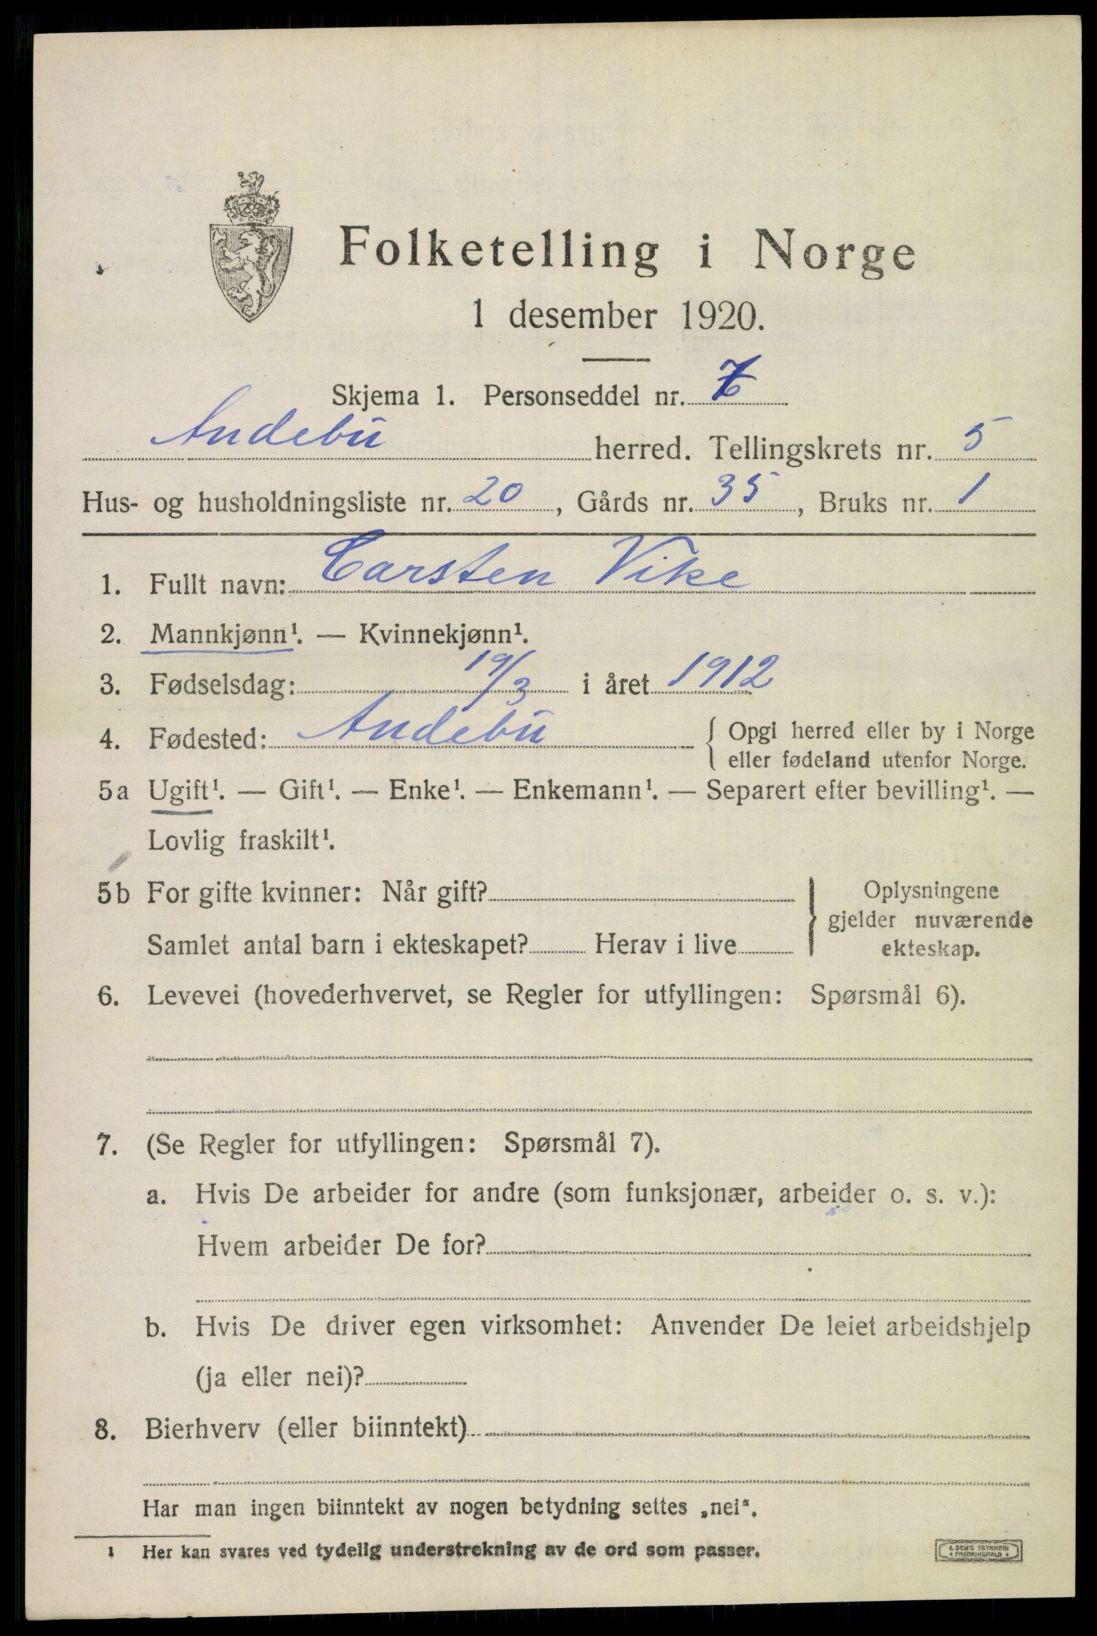 Folketelling i Norge
1 desember 1920.
Skjema 1. Personseddel nr.
Andebu herred. Tellingskrets nr. 5
Hus- og husholdningsliste nr. 20, Gårds nr. 35, Bruks nr. 1
1. Fullt navn: Carsten Vike
2. Mannkjønn¹. — Kvinnekjønn¹.
3. Fødselsdag: 19/3 i året 1912
4. Fødested: Andebu { Opgi herred eller by i Norge
eller fødeland utenfor Norge.
5a Ugift¹. — Gift¹. — Enke¹. — Enkemann¹. — Separert efter bevilling¹. —
Lovlig fraskilt¹.
5b For gifte kvinner: Når gift?
Samlet antal barn i ekteskapet? Herav i live
} Oplysningene
gjelder nuværende
ekteskap.
6. Levevei (hovederhvervet, se Regler for utfyllingen: Spørsmål 6).
7. (Se Regler for utfyllingen: Spørsmål 7).
a. Hvis De arbeider for andre (som funksjonær, arbeider o. s. v.):
Hvem arbeider De for?
b. Hvis De driver egen virksomhet: Anvender De leiet arbeidshjelp
(ja eller nei)?
8. Bierhverv (eller biinntekt)
Har man ingen biinntekt av nogen betydning settes „nei“.
¹ Her kan svares ved tydelig understrekning av de ord som passer.